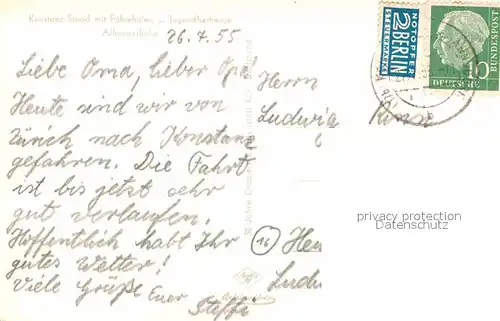 Konstanz-Staad mit Fährehafen u. Jugendherberge
26.7.55
Liebe Oma, lieber Opa!
Heute sind wir von
Zürich nach Konstanz
gefahren. Die Fahrt
ist bis jetzt sehr
gut verlaufen.
Hoffentlich habt Ihr
gutes Wetter!
Viele Grüße Euer
Steffi
Herrn
Ludwig
(16)
NOTOPFER
2 BERLIN
STEUERMARKE
DEUTSCHE BUNDESPOST
10
privacy protection
Datenschutz